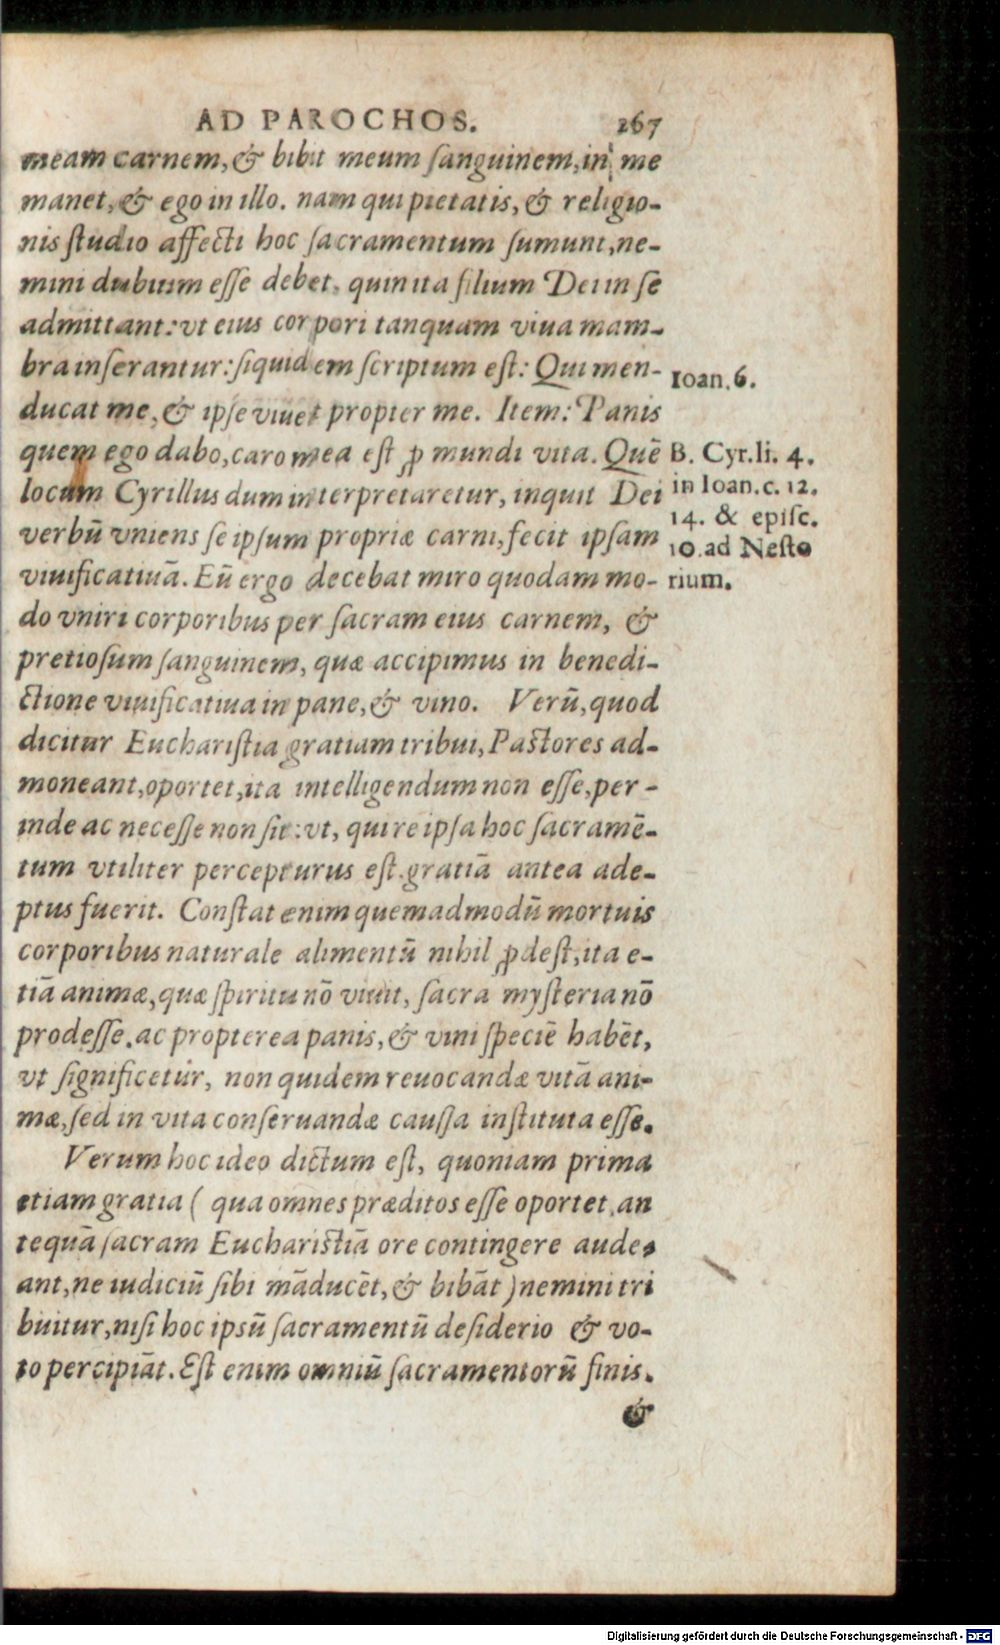 AD PAROCHOS. 267
meam carnem, & bibit meum ſanguinem, in me
manet, & ego in illo. nam qui pietatis, & religio-
nis ſtudio affecti hoc ſacramentum ſumunt, ne-
mini dubium eſſe debet, quin ita filium Dei in ſe
admittant: vt eius corpori tanquam viua mam-
bra inſerantur: ſiquidem ſcriptum eſt: Qui men-
ducat me, & ipſe viuet propter me. Item: Panis
quem ego dabo, caro mea eſt ꝓ mundi vita. Quē
locum Cyrillus dum interpretaretur, inquit Dei
verbū vniens ſe ipſum propriæ carni, fecit ipſam
viuificatiuā. Eū ergo decebat miro quodam mo-
do vniri corporibus per ſacram eius carnem, &
pretioſum ſanguinem, quæ accipimus in benedi-
ctione viuificatiua in pane, & vino. Verū, quod
dicitur Euchariſtia gratiam tribui, Paſtores ad-
moneant, oportet, ita intelligendum non eſſe, per-
inde ac neceſſe non ſit: vt, qui re ipſa hoc ſacramē-
tum vtiliter percepturus eſt. gratiā antea ade-
ptus fuerit. Conſtat enim quemadmodū mortuis
corporibus naturale alimentū nihil ꝓdeſt, ita e-
tiā animæ, quæ ſpiritu nō viuit, ſacra myſteria nō
prodeſſe. ac propterea panis, & vini ſpeciē habēt,
vt ſignificetur, non quidem reuocandæ vitā ani-
mæ, ſed in vita conſeruandæ cauſſa inſtituta eſſe.
Verum hoc ideo dictum eſt, quoniam prima
etiam gratia ( qua omnes præditos eſſe oportet, an
tequā ſacram Euchariſtiā ore contingere aude-
ant, ne iudiciū ſibi māducēt, & bibāt ) nemini tri
buitur, niſi hoc ipſū ſacramentū deſiderio & vo-
to percipiāt. Eſt enim omniū ſacramentorū finis.
&
Ioan. 6.
B. Cyr. li. 4.
in Ioan. c. 12.
14. & epiſc.
10. ad Neſto
rium.
Digitalisierung gefördert durch die Deutsche Forschungsgemeinschaft - DFG